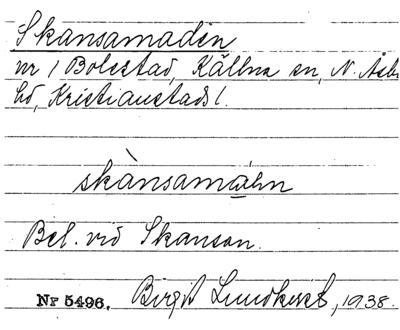 Skansamaden
nr 1 Bolestad, Källna sn, N. Åsbo
hd, Kristianstads l.
skànsamàhn
Bel. vid Skansen.
Nr 5496. Birgit Lundkvist, 1938.